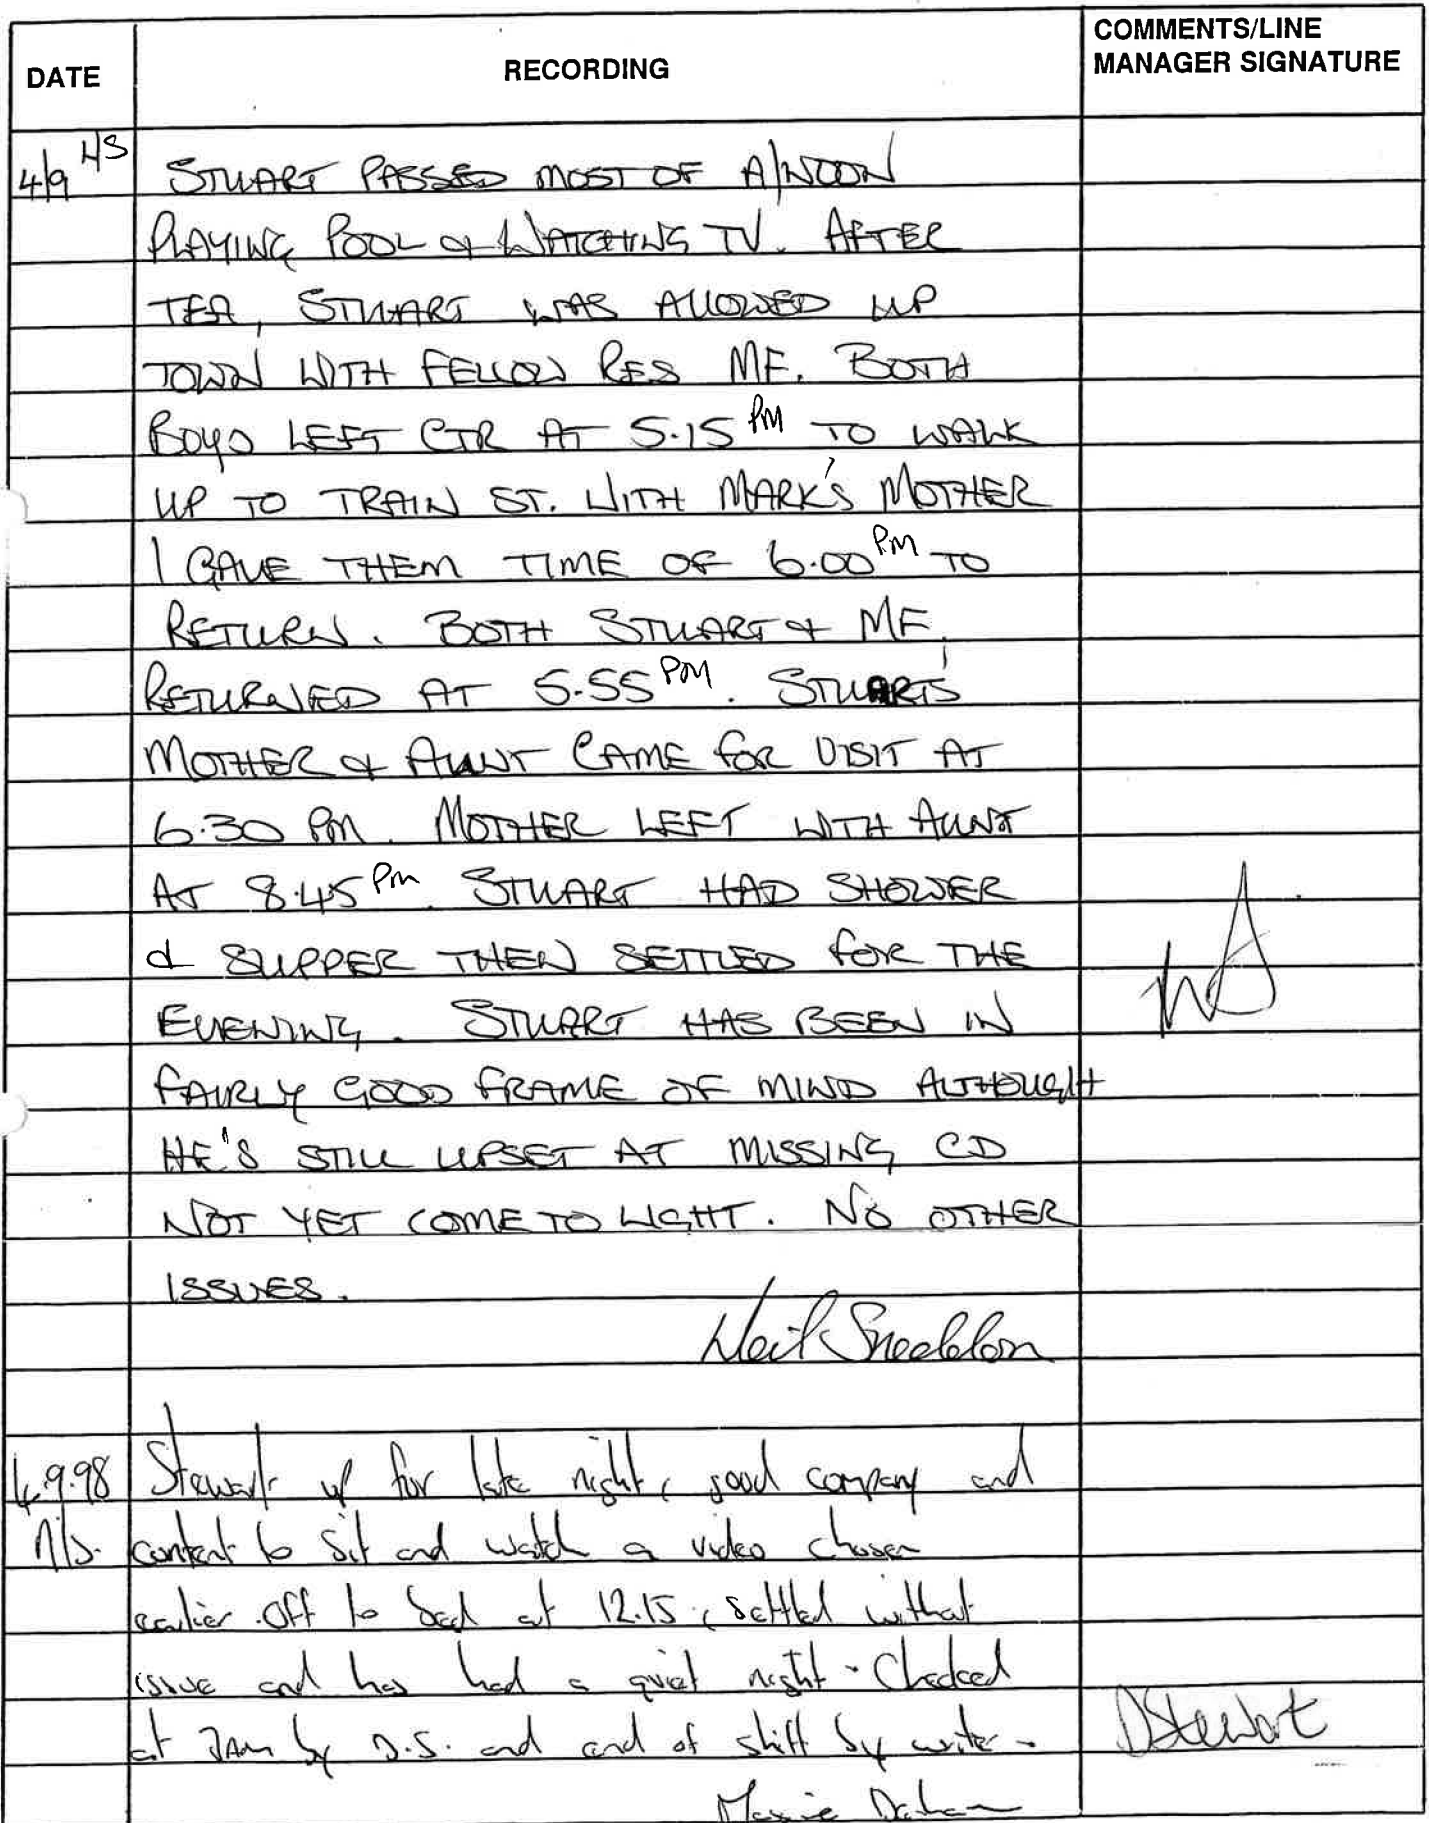 DATE
RECORDING
COMMENTS/LINE
MANAGER SIGNATURE
4/9
STUART PASSED MOST OF A/NOON
PLAYING POOL & WATCHING TV. AFTER
TEA, STUART WAS ALLOWED UP
TOWN WITH FELLOW RES MF. BOTH
BOYS LEFT CTR AT 5.15 PM TO WALK
UP TO TRAIN ST. WITH MARK'S MOTHER
I GAVE THEM TIME OF 6.00 PM TO
RETURN. BOTH STUART & MF.
RETURNED AT 5.55 PM. STUART'S
MOTHER & AUNT CAME FOR VISIT AT
6.30 PM. MOTHER LEFT WITH AUNT
AT 8.45 PM. STUART HAD SHOWER
& SUPPER THEN SETTLED FOR THE
EVENING. STUART HAS BEEN IN
FAIRLY GOOD FRAME OF MIND ALTHOUGH
HE'S STILL UPSET AT MISSING CD
NOT YET COME TO LIGHT. NO OTHER
ISSUES.
Neil Sneddon
4.9.98 Stewart up for late night, good company and
N/S. content to sit and watch a video chosen
earlier. Off to bed at 12.15, settled without
issue and has had a quiet night. Checked
at 2am by D.S. and end of shift by writer.
DStewart